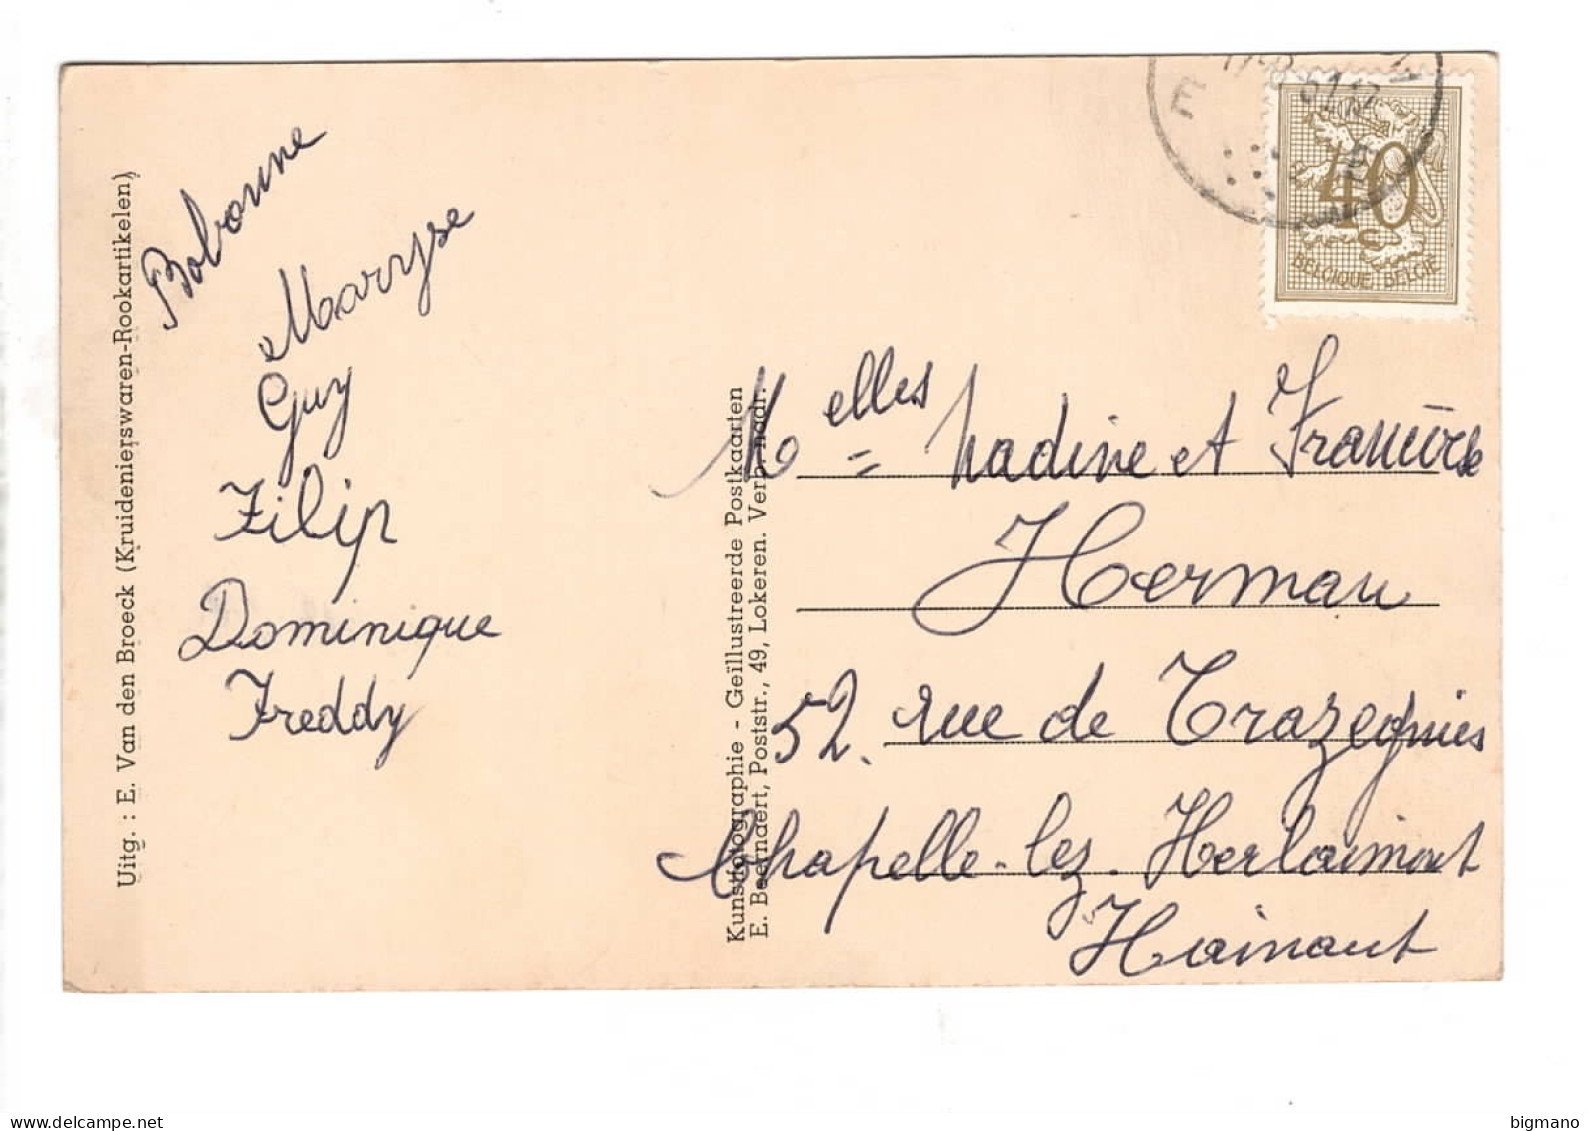 Uitg. : E. Van den Broeck (Kruidenierswaren-Rookartikelen)
Bobonne
Maryse
Guy
Filip
Dominique
Freddy
Kunstfotographie - Geïllustreerde Postkaarten
E. Beerndert, Poststr., 49, Lokeren. Verb. nadr.
40
BELGIQUE BELGIË
Melles Nadine et
Herman
52. rue de Trazegnies
Chapelle-lez-Herlaimont
Hainaut
bigmano